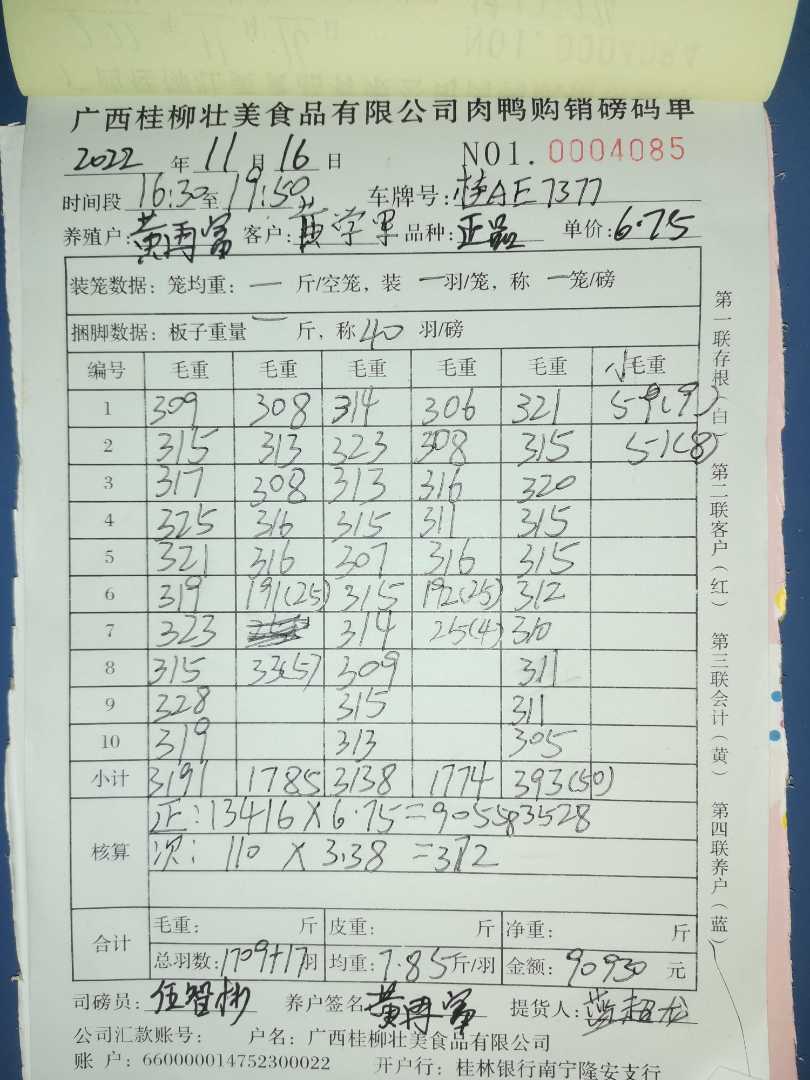 广西桂柳壮美食品有限公司肉鸭购销磅码单
2022 年 11 月 16 日 NO1. 0004085
时间段 16:30 至 19:50 车牌号: 桂AE7377
养殖户: 黄再富 客户: 黄学军 品种: 正品 单价: 6.75
装笼数据: 笼均重: 一 斤/空笼, 装 一 羽/笼, 称 一 笼/磅
捆脚数据: 板子重量 一 斤, 称 40 羽/磅
编号 毛重 毛重 毛重 毛重 毛重 小毛重
1 309 308 314 306 321 59(9)
2 315 313 323 308 315 51(8)
3 317 308 313 316 320
4 325 316 315 311 315
5 321 316 307 316 315
6 319 191(25) 315 192(25) 312
7 323 314 25(4) 310
8 315 33(5) 309 311
9 328 315 311
10 319 313 305
小计 3191 1785 3138 1774 393(50)
核算 正: 13416 X 6.75 = 90558 3528
次: 110 X 3.38 = 372
合计 毛重: 斤 皮重: 斤 净重: 斤
总羽数: 1709+17 羽 均重: 7.85 斤/羽 金额: 90930 元
司磅员: 任智彬 养户签名 黄再富 提货人: 蓝超龙
公司汇款账号: 户名: 广西桂柳壮美食品有限公司
账 户: 660000014752300022 开户行: 桂林银行南宁隆安支行
第一联存根(白) 第二联客户(红) 第三联会计(黄) 第四联养户(蓝)